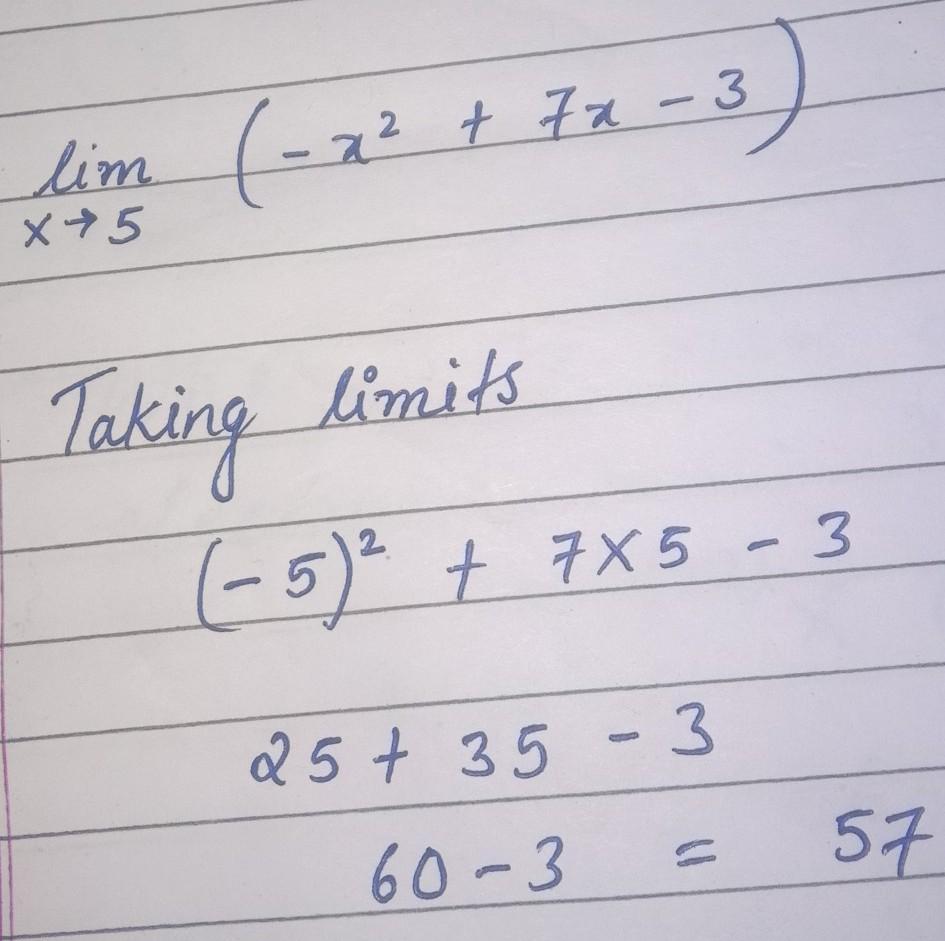 lim (-x² + 7x - 3)
x→5
Taking limits
(-5)² + 7×5 - 3
25 + 35 - 3
60 - 3 = 57